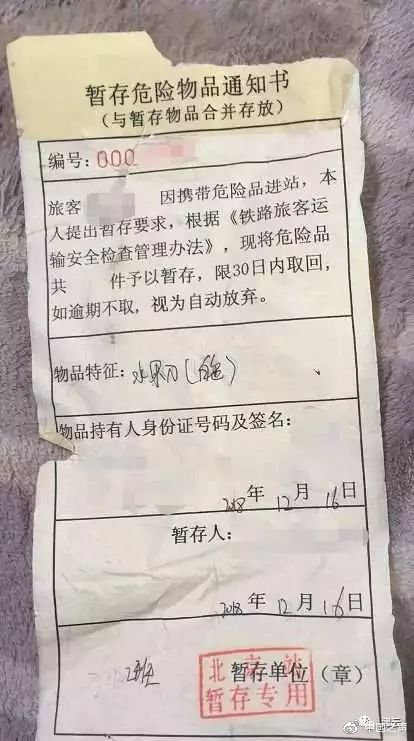 暂存危险物品通知书
（与暂存物品合并存放）
编号：000
旅客 因携带危险品进站，本
人提出暂存要求，根据《铁路旅客运
输安全检查管理办法》，现将危险品
共 件予以暂存，限30日内取回，
如逾期不取，视为自动放弃。
物品特征：水果刀（白色）
物品持有人身份证号码及签名：
2018年12月16日
暂存人：
2018年12月16日
班 暂存单位（章）
北京站
暂存专用
中国之声